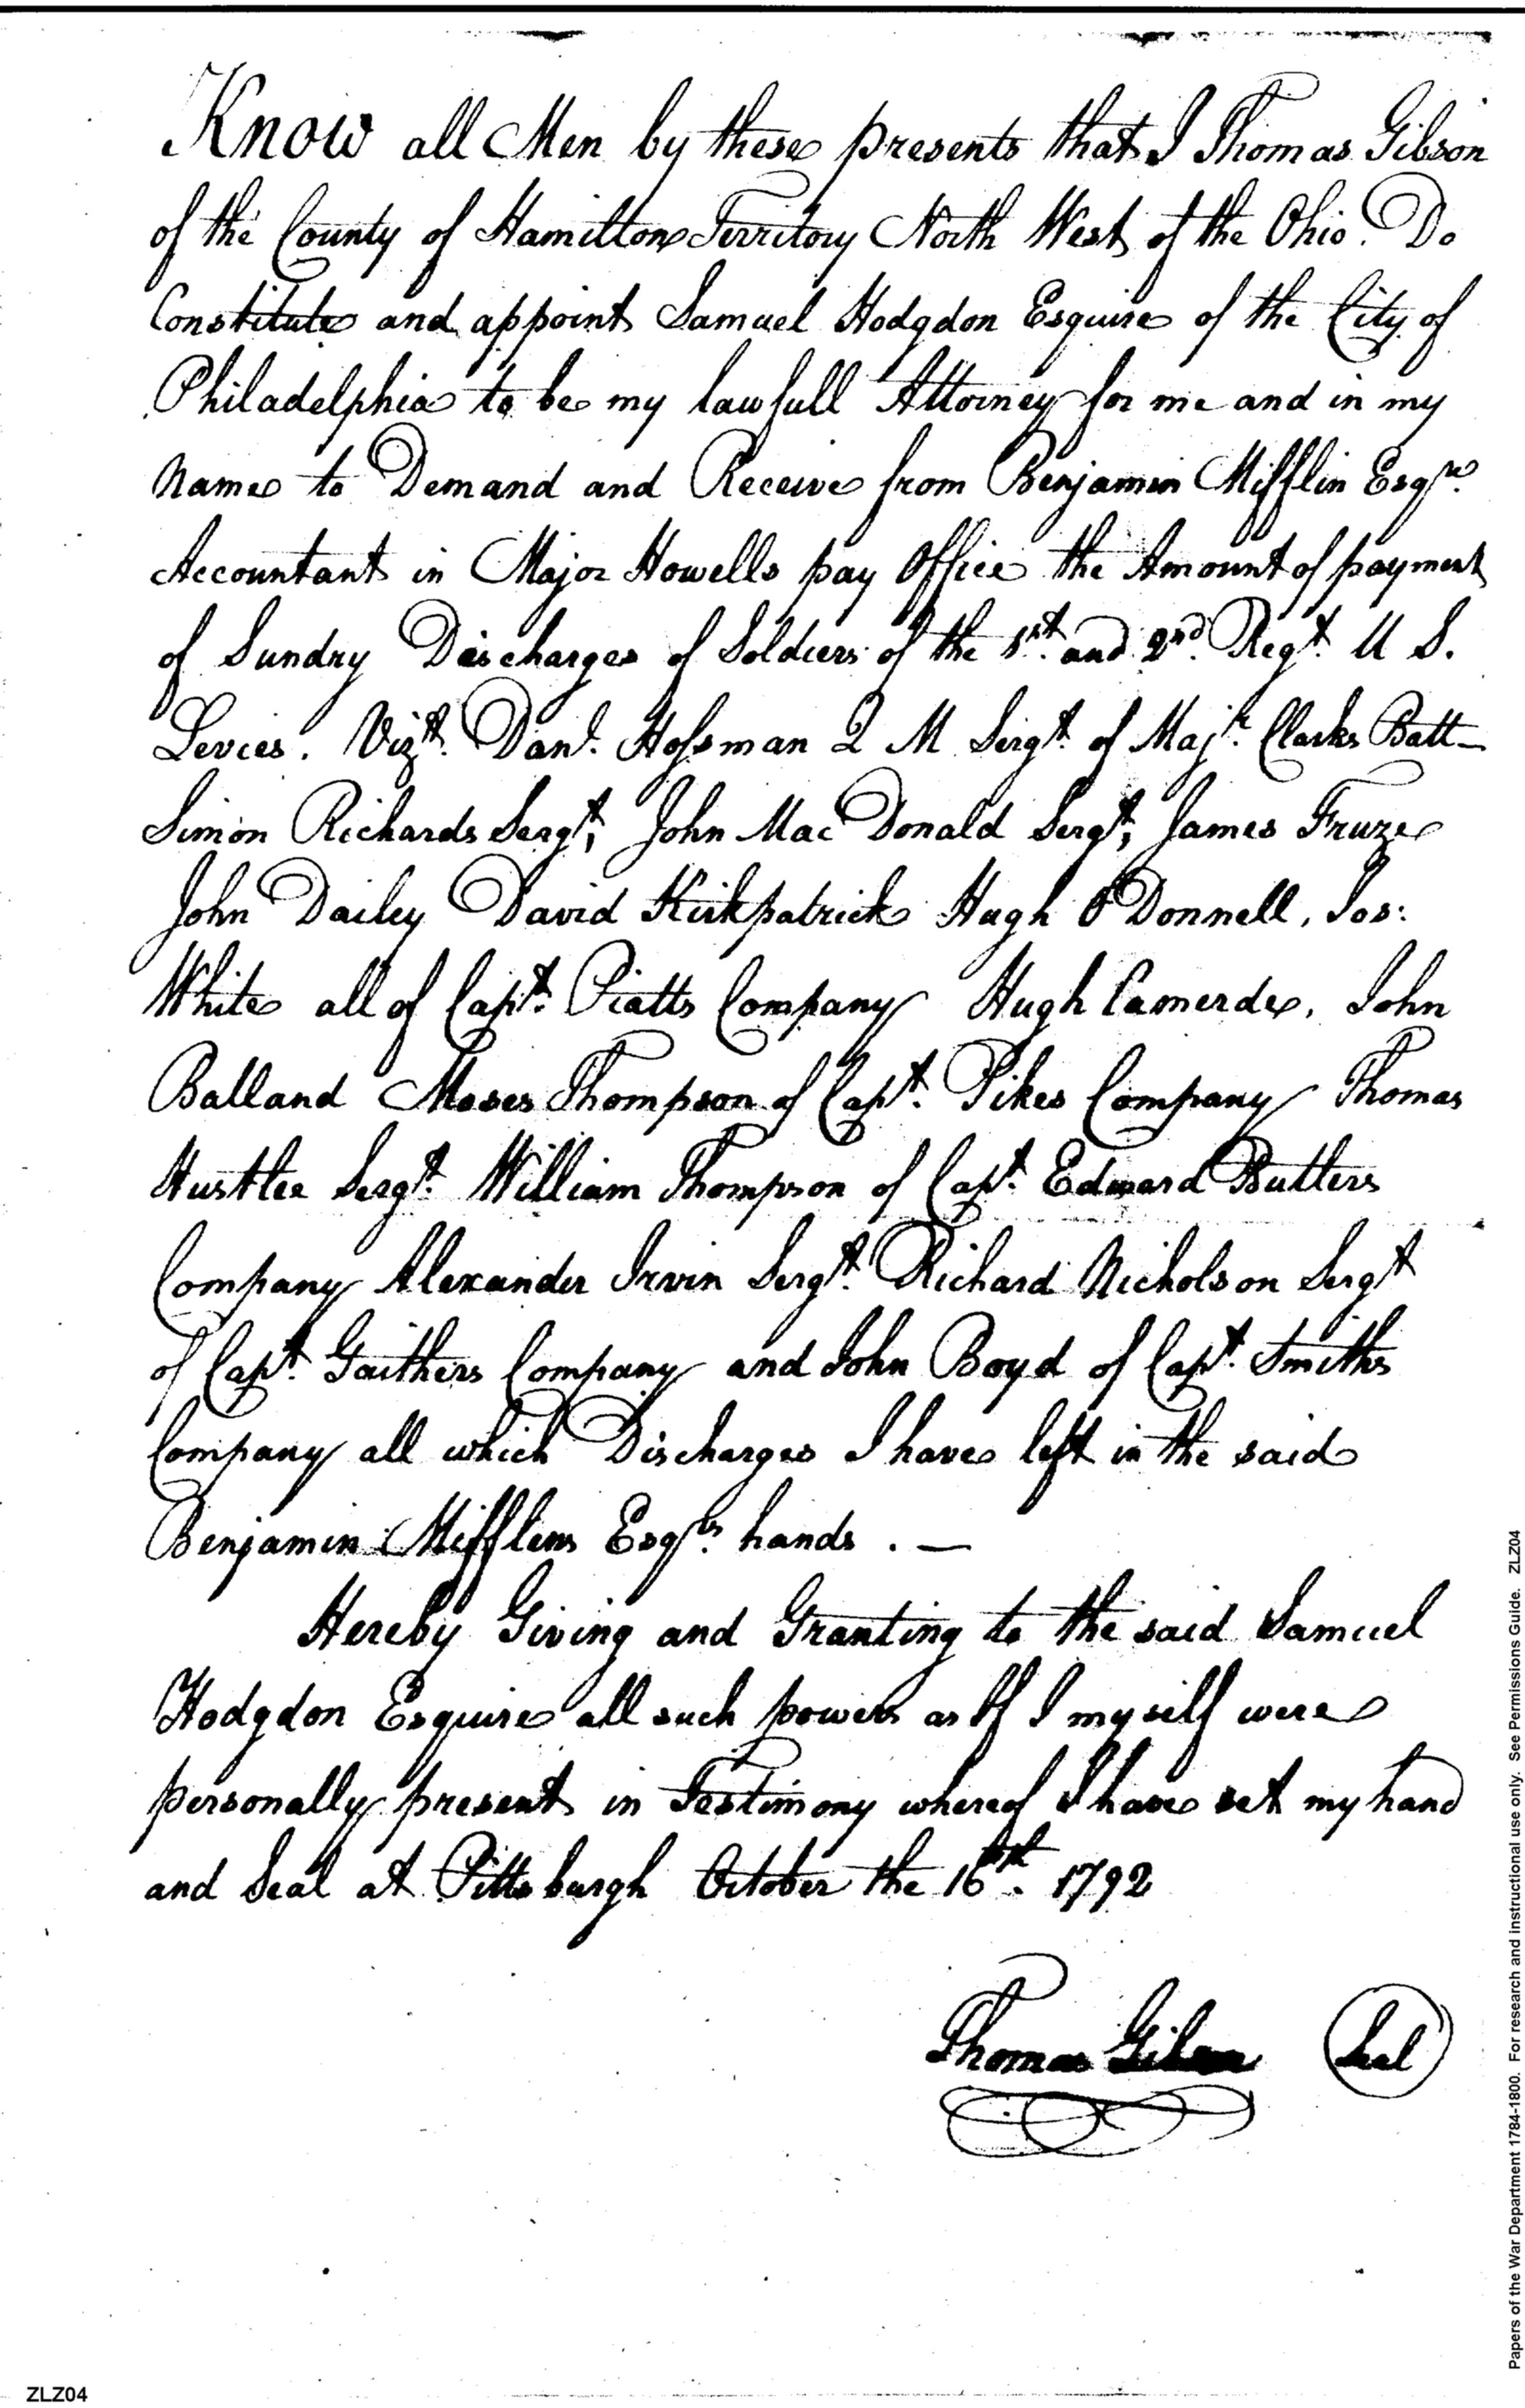 Know all Men by these presents that I Thomas Gibson
of the County of Hamilton Territory North West of the Ohio. Do
Constitute and appoint Samuel Hodgdon Esquire of the City of
Philadelphia to be my lawfull Attorney for me and in my
Name to Demand and Receive from Benjamin Mifflin Esqre.
Accountant in Major Howells pay Office the Amount of payment
of Sundry Discharges of Soldiers of the 1st. and 2nd. Regt. U S.
Levies. Vizt. Danl. Hossman Q M Sergt. of Majr. Clarks Batt–
Simon Richards Sergt, John Mac Donald Sergt, James Fruze
John Dailey David Kirkpatrick Hugh O'Donnell, Jos:
White all of Capt. Piatts Company Hugh Camerde, John
Balland Moses Thompson of Capt. Pikes Company Thomas
Hustler Sergt. William Thompson of Capt. Edward Butlers
Company Alexander Irvin Sergt. Richard Nicholson Sergt
of Capt. Gaithers Company and John Boyd of Capt. Smiths
Company all which Discharges I have left in the said
Benjamin Mifflins Esqrs. hands . —
Hereby Giving and Granting to the said Samuel
Hodgdon Esquire all such powers as If I myself were
personally present in Testimony whereof I have set my hand
and Seal at Pittsburgh October the 16th. 1792
Thomas Gibson Seal
Papers of the War Department 1784-1800. For research and instructional use only. See Permissions Guide. ZLZ04
ZLZ04